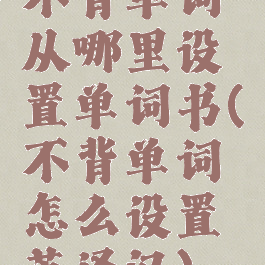 不背单词
从哪里设
置单词书(
不背单词
怎么设置
英译词)